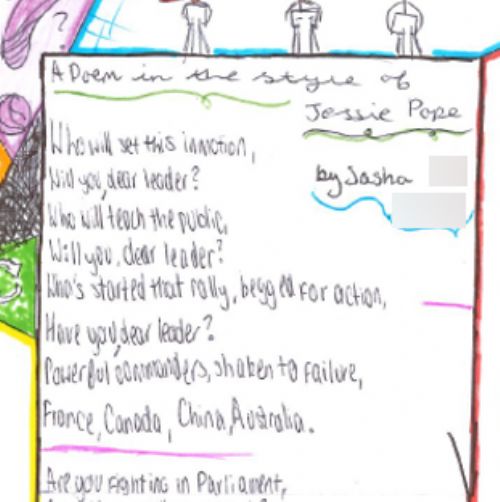 A Poem in the style of
Jessie Pope
by Sasha
Who will set this in motion,
Will you, dear leader?
Who will teach the public,
Will you, dear leader?
Who's started that rally, begged for action,
Have you, dear leader?
Powerful commanders, shaken to failure,
France, Canada, China, Australia.
Are you fighting in Parliament,